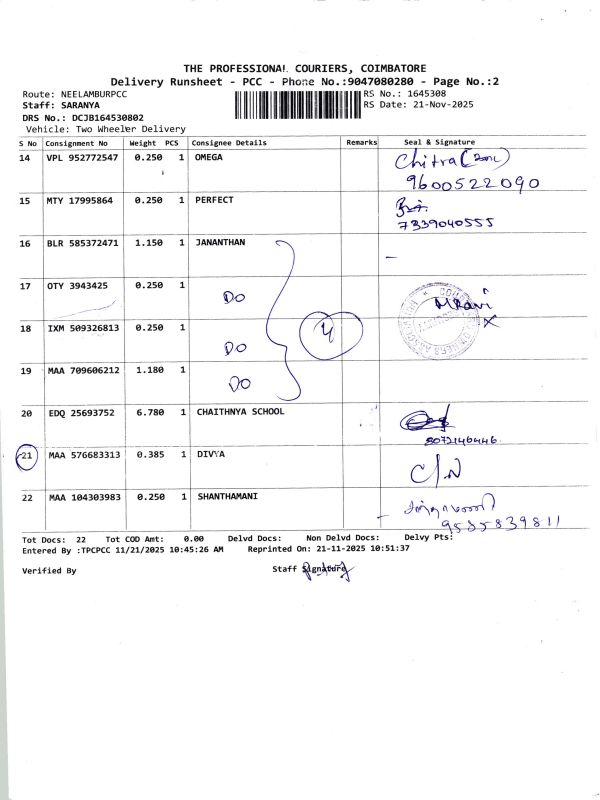 THE PROFESSIONAL COURIERS, COIMBATORE
Delivery Runsheet - PCC - Phone No.:9047080280 - Page No.:2
Route: NEELAMBURPCC
RS No.: 1645308
Staff: SARANYA
RS Date: 21-Nov-2025
DRS No.: DCJB164530802
Vehicle: Two Wheeler Delivery
S No Consignment No Weight PCS Consignee Details Remarks Seal & Signature
14 VPL 952772547 0.250 1 OMEGA Chitra
9600522090
15 MTY 17995864 0.250 1 PERFECT
7339040555
16 BLR 585372471 1.150 1 JANANTHAN -
17 OTY 3943425 0.250 1 DO MRavi
18 IXM 509326813 0.250 1 DO 4
19 MAA 709606212 1.180 1 DO
20 EDQ 25693752 6.780 1 CHAITHNYA SCHOOL
8072146446
21 MAA 576683313 0.385 1 DIVYA
22 MAA 104303983 0.250 1 SHANTHAMANI
9585839811
Tot Docs: 22 Tot COD Amt: 0.00 Delvd Docs: Non Delvd Docs: Delvy Pts:
Entered By :TPCPCC 11/21/2025 10:45:26 AM Reprinted On: 21-11-2025 10:51:37
Verified By Staff Signature